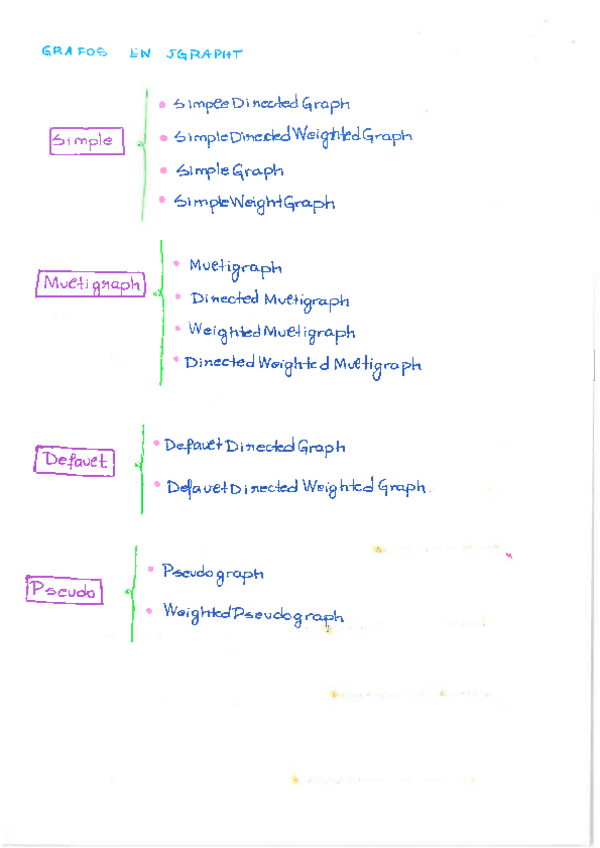 GRAFOS EN JGRAPHT
Simple
SimpleDirectedGraph
SimpleDirectedWeightedGraph
SimpleGraph
SimpleWeightGraph
Multigraph
Multigraph
Directed Multigraph
WeightedMultigraph
DirectedWeighted Multigraph
Default
DefaultDirectedGraph
DefaultDirected Weighted Graph.
Pseudo
Pseudograph
WeightedPseudograph